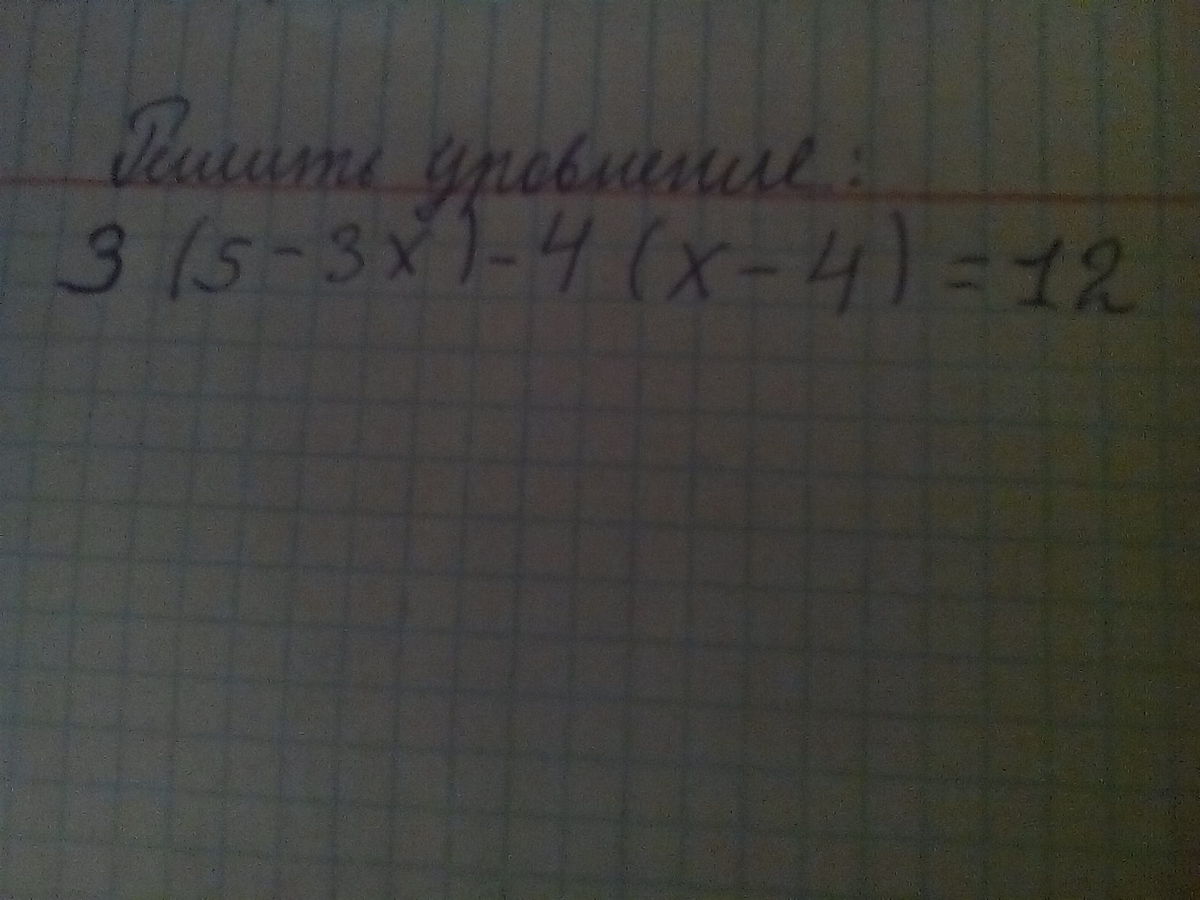 Решить уровнение:
3 (5 - 3x) - 4 (x - 4) = 12